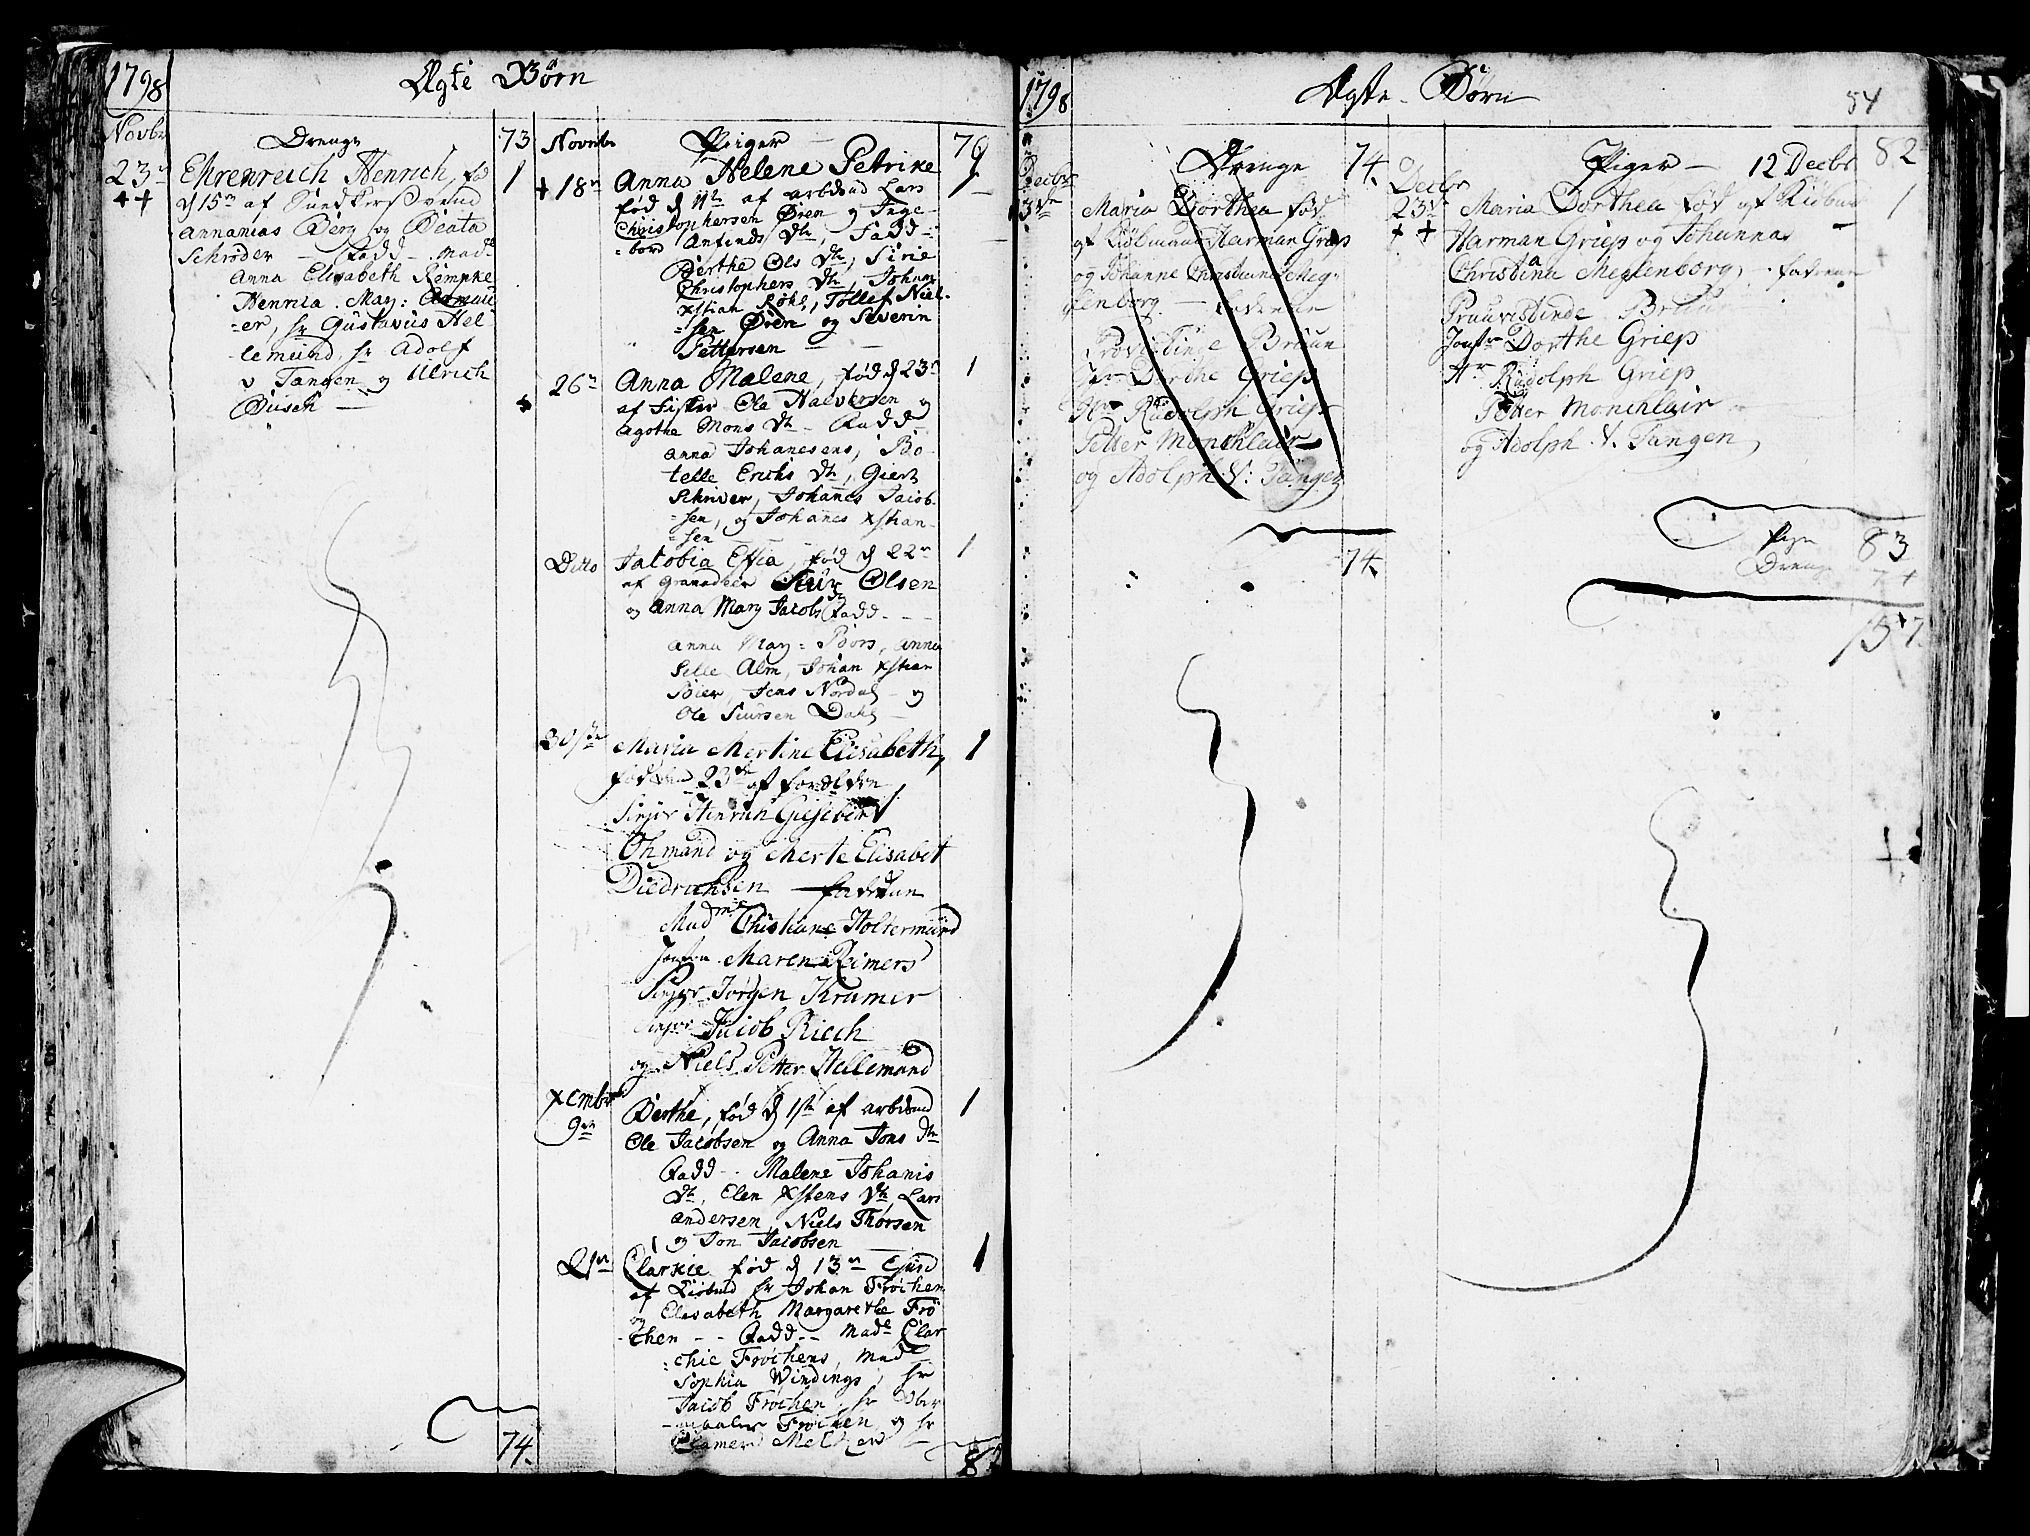 1798
Ægte Børn
Novbr
Drenge
73
23n
Ehrenreich Henrich, fød
1
d 15n af Sundkersvend
Annanias Berg og Beata
Schrøder — Fadd — Made
Anna Elisabeth Rempke
Henrica Mar:
er, hr Gustavus Hel
lemund, hr Adolf
v Tangen og Ulrich
Busch —
74.
Novmbr
Piger —
76
+ 18n
Anna Helene Petrike
1
fød d 11te af arbdmd Lars
Christophersen Øren og Inge-
bord Anfinds Dtr, Fadd-
Berthe Ols Dtr, Sirie
Christophers Dtr, Johan
Xstian Røhl, Tollef Niel-
sen Øren og Severin
Pettersen
26n
Anna Malene, fød d 23n
1
af Fisker Ole Halversen og
Agothe Mons Dtr — Fadd
Anna Johanesens, Bo-
telle Erichs Dtr, Giert
Schriver, Johanes Jacob-
sen, og Johanes Xstian-
sen
Ditto
Jacobia Effia, fød d 22n
1
af Granadeer Siur Olsen
og Anna Mary Jacobs Dtr Fadd
Anna Mar: Børs, Anna
Sille Alm, Johan Xstian
Böier, Jens Nordal — og
Ole Siursen Dahl —
30te
Maria Mertine Elisabeth,
1
fød den 23de af forældren
Sinjor Hinrich Giesebert
Ohmand og Merte Elisabet
Diedrichsen — fadran
Madme Christiane Holtermund
Jomfru Maren Reimers
Sinjor Jörgen Kramer
Sinjor Jacob Riech
og Niels Petter Hellemand
Xembr
9en
Berthe, fød d 1ste af arbdmd
1
Ole Jacobsen og Anna Jons Dtr
Fadd — Malene Johanis
Dtr, Elen Xstens Dtr, Lars
Andersen, Niels Thorsen
og Jon Jacobsen
21n
Clarkie fød d 13n Ejusd
1
af Kiøbmd hr Johan Frøchen
og Elesabeth Margarethe Frö
chen — Fadd — Made Clar
chie Frøchens, Made
Sophia Windings, hr
Jacob Frøchen, hr Ober
Frøchen og hr
8
1798
Ægte Børn
54
Decbr
Drenge
74.
3de
Maria Dorthea fød
af Kiøbmand Harman Griep
og Johanne Christiane Meg-
lenborg — fadrene
Provistinde Bruun
Jfr Dorthe Griep
Hr Rudolph Griep
Petter Monchlair
og Adolph V: Tangen
74.
Decbr
Piger — 12 Decbr
82
23de
Maria Dorthea fød af Kiöbm
1
Harman Griep og Johanna
Christina Meglenborg, — fadrene
Pruuvistinde Bruun
Jomfr Dorthe Griep
Hr Rudolph Griep
Petter Monchlair
og Adolph V. Tangen,
Piger
83
Drenge
74
157